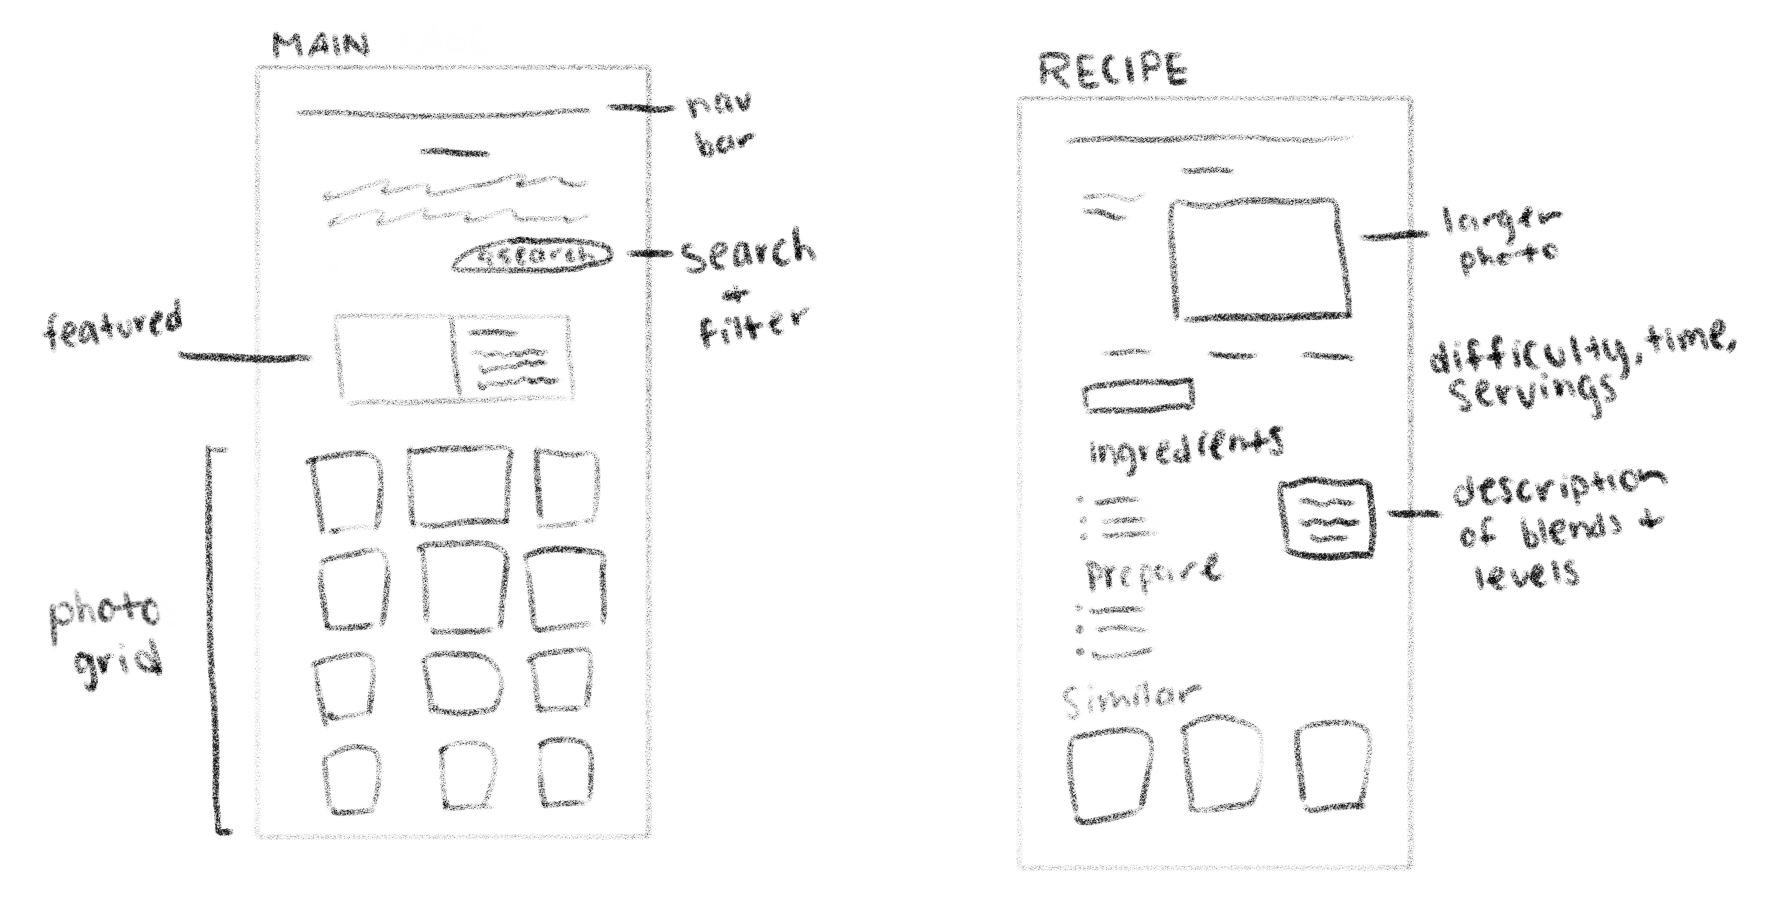 MAIN
nav
bar
search
search
+
filter
featured
photo
grid
RECIPE
larger
photo
difficulty, time,
servings
ingredients
description
of blends +
levels
prepare
Similar